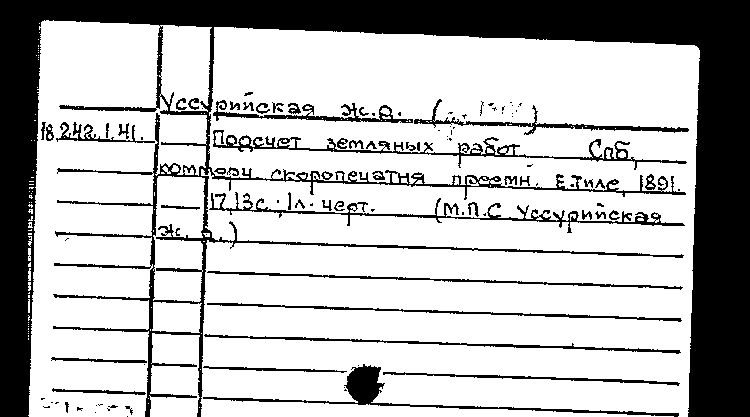 Уссурийская ж.д.
18.242.1.41. Подсчет земляных работ Спб,
коммерч. скоропечатня преемн. Е.Тиле, 1891.
17,13с.; 1л. черт. (М.П.С Уссурийская
ж. д.)